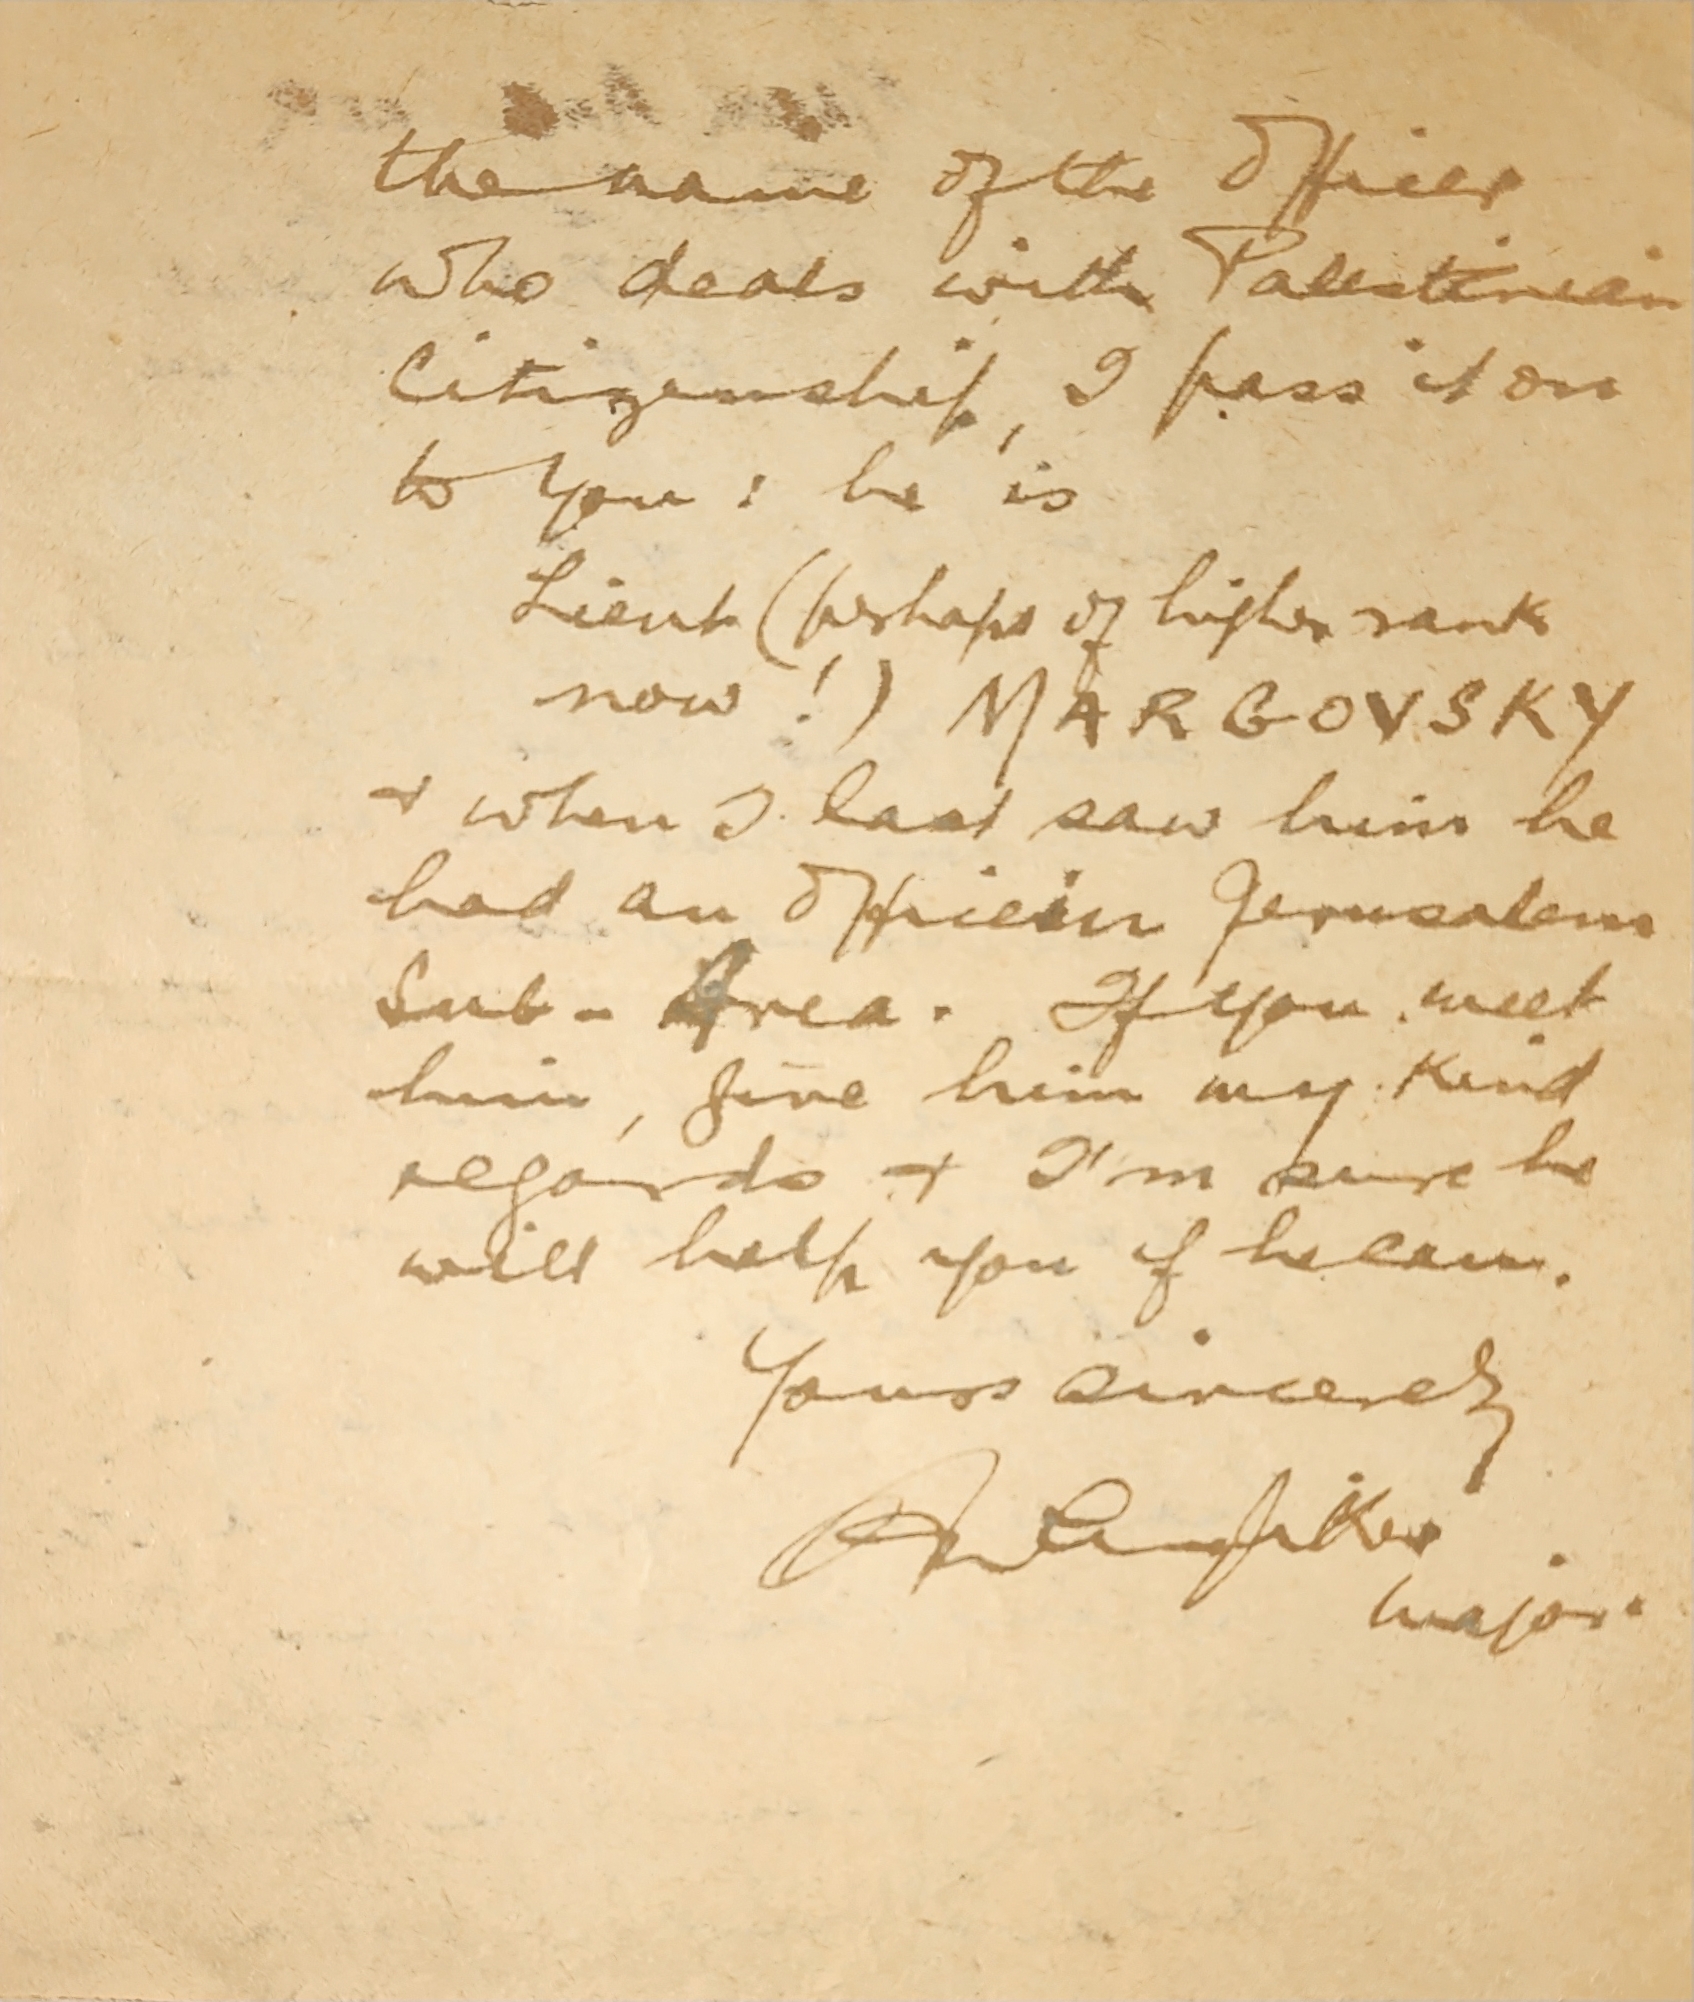 the name of the Officer
who deals with Palestinian
Citizenship, I pass it on
to you: he is
Lieut (perhaps of higher rank
now!) MARGOVSKY
+ when I last saw him he
had an Office in Jerusalem
Sub-Area. If you meet
him, give him my kind
regards + I'm sure he
will help you if he can.
Yours sincerely
Major.